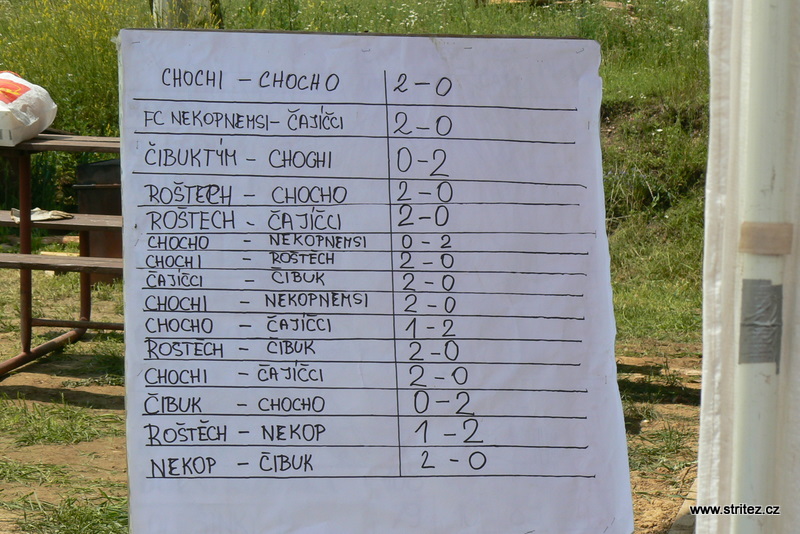 CHOCHI - CHOCHO 2-0
FC NEKOPNEMSI - ČAJÍČCI 2-0
ČIBUKTÝM - CHOCHI 0-2
ROŠTĚCH - CHOCHO 2-0
ROŠTECH - ČAJÍČCI 2-0
CHOCHO - NEKOPNEMSI 0-2
CHOCHI - ROŠTĚCH 2-0
ČAJÍČCI - ČIBUK 2-0
CHOCHI - NEKOPNEMSI 2-0
CHOCHO - ČAJÍČCI 1-2
ROŠTĚCH - ČIBUK 2-0
CHOCHI - ČAJÍČCI 2-0
ČIBUK - CHOCHO 0-2
ROŠTĚCH - NEKOP 1-2
NEKOP - ČIBUK 2-0
www.stritez.cz